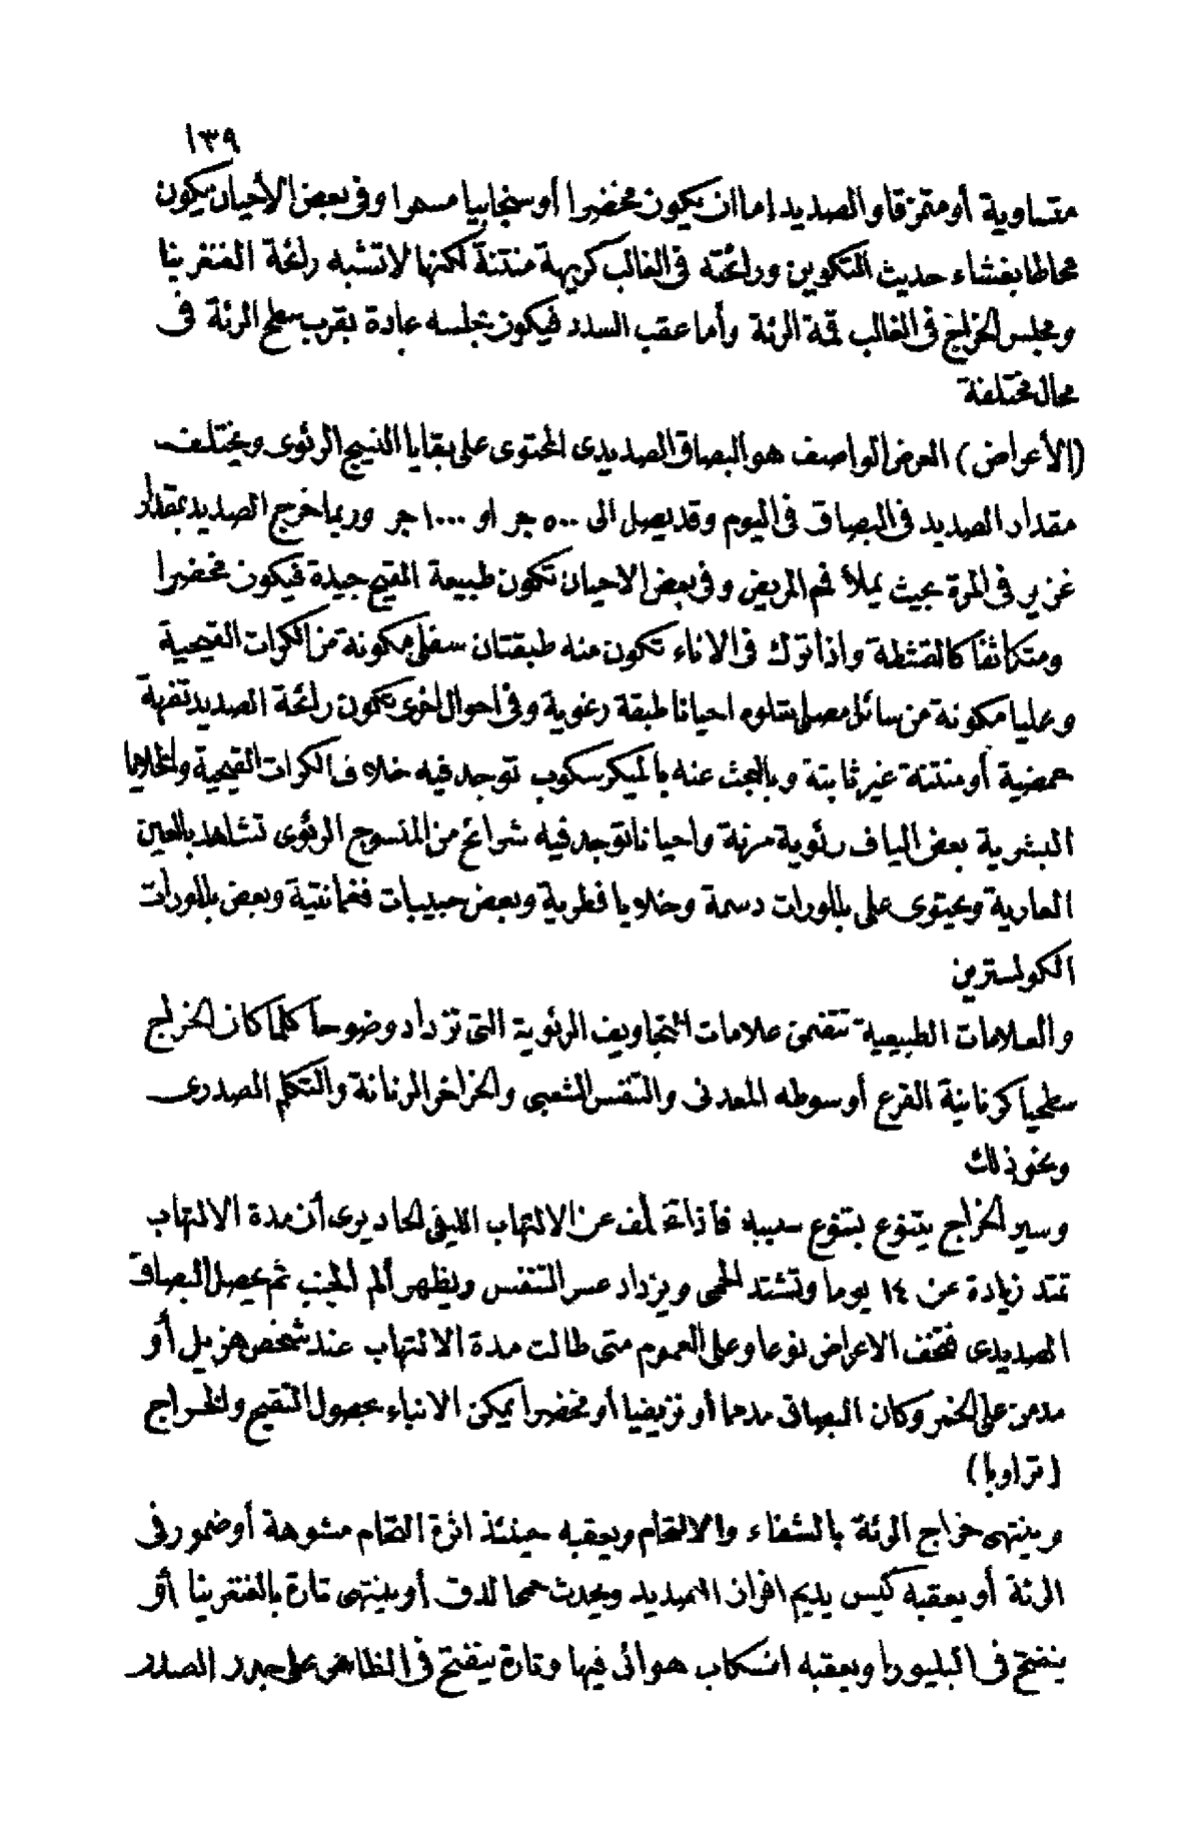 ١٣٩
متساوية أو متمزقا والصديد إما ان يكون مخضرا أو سنجابيا مسمرا وفى بعض الأحيان يكون
محاطا بغشاء حديث التكوين ورائحته فى الغالب كريهة منتنة لكنها لا تشبه رائحة الغنغرينا
ومجلس الخراج فى الغالب قمة الرئة وأما عقب السدد فيكون مجلسه عادة بقرب سطح الرئة فى
محال مختلفة
(الأعراض) العرض الواصف هو البصاق الصديدى المحتوى على بقايا النسيج الرئوى ويختلف
مقدار الصديد فى البصاق فى اليوم وقد يصل الى ٥٠٠ جر او ١٠٠٠ جر وربما خرج الصديد بمقدار
غزير فى المرة بحيث يملأ فم المريض وفى بعض الاحيان تكون طبيعة القيح جيدة فيكون مخضرا
ومتكاثفا كالقشطة واذا ترك فى الاناء تكون منه طبقتان سفلى مكونة من الكرات القيحية
وعليا مكونة من سائل مصلى تتلوه احيانا طبقة رغوية وفى احوال اخرى تكون رائحة الصديد تفهة
حمضية أو منتنة غير ثابتة وبالبحث عنه بالميكرسكوب توجد فيه خلاف الكرات القيحية والخلايا
البشرية بعض الياف رئوية مرنة واحيانا توجد فيه شرائح من المنسوج الرئوى تشاهد بالعين
العارية ويحتوى على بللورات دسمة وخلايا فطرية وبعض حبيبات فغمانتية وبعض بللورات
الكولسترين
والعلامات الطبيعية تتضمن علامات التجاويف الرئوية التى تزداد وضوحا كلما كان الخراج
سطحيا كرنانية القرع أو سوطه المعدنى والتنفس الشعبى والخراخر الرنانة والتكلم الصدرى
ونحو ذلك
وسير الخراج يتنوع بتنوع سببه فاذا تخلف عن الالتهاب الليفى الحاد يرى أن مدة الالتهاب
تمتد زيادة عن ١٤ يوما وتشتد الحمى ويزداد عسر التنفس ويظهر ألم الجنب ثم يحصل البصاق
الصديدى فتخف الاعراض نوعا وعلى العموم متى طالت مدة الالتهاب عند شخص هزيل أو
مدمن على الخمر وكان البصاق مدمما أو نزيفيا أو مخضرا يمكن الانباء بحصول التقيح والخراج
(تراوبا)
وينتهى خراج الرئة بالشفاء والالتحام ويعقبه حينئذ اثرة التحام مشوهة أو ضمور فى
الرئة أو يعقبه كيس يديم افراز الصديد ويحدث حمحا لدق أو ينتهى تارة بالغنغرينا أو
ينفتح فى البليورا ويعقبه انسكاب هوائى فيها وتارة ينفتح فى الظاهر على جدر الصدر